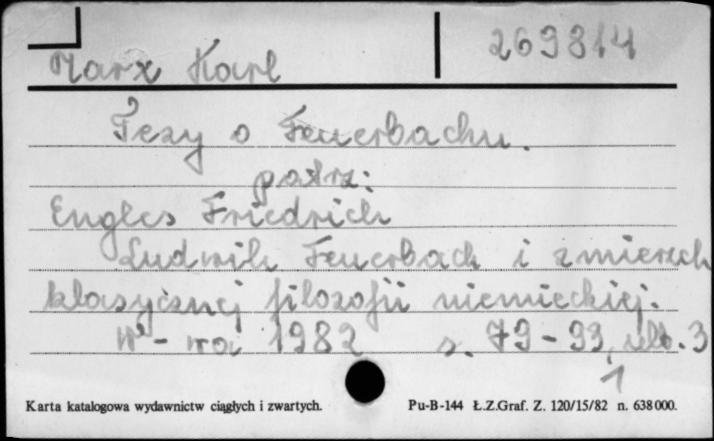 Marx Karl
269814
Tezy o Feuerbachu.
patrz:
Engles Friedrich
Ludwik Feuerbach i zmierzch
klasycznej filozofii niemieckiej.
W-wa 1982 s. 79-93, nlb. 3
1
Karta katalogowa wydawnictw ciągłych i zwartych.
Pu-B-144 Ł.Z.Graf. Z. 120/15/82 n. 638000.